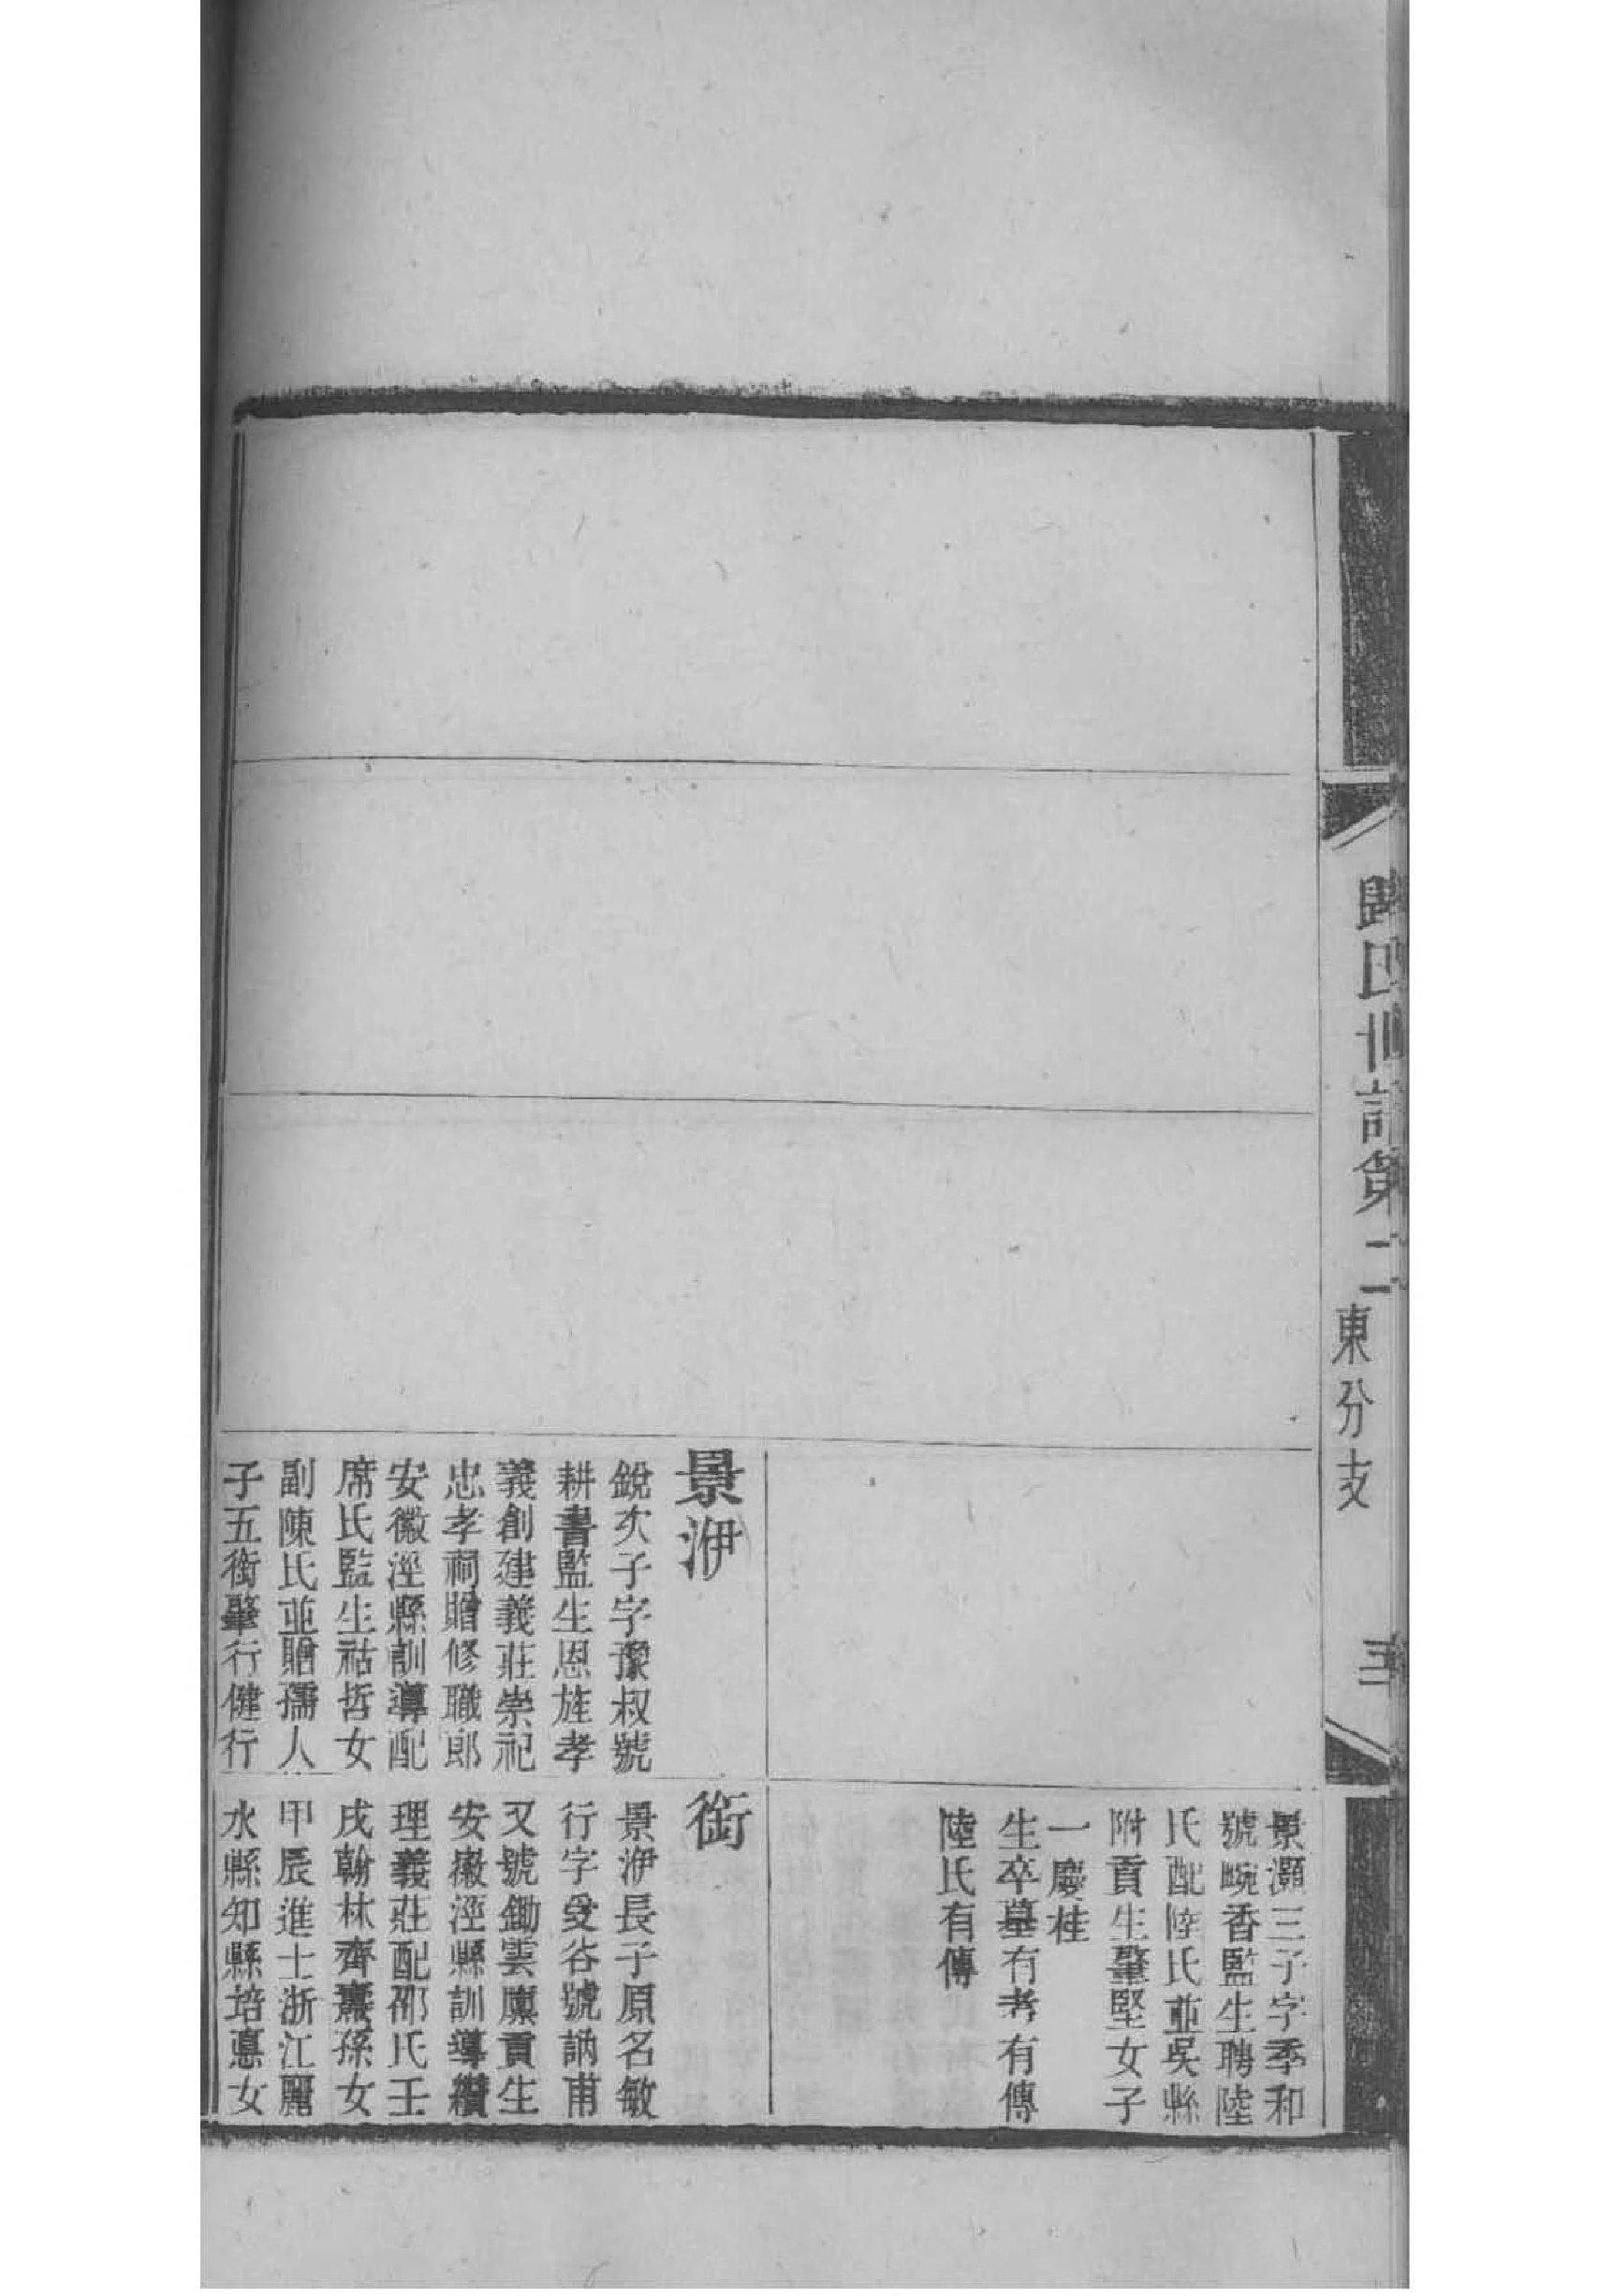 歸氏世譜第二
東分支
三
景灝三子字季和
號畹香監生聘陸
氏配陸氏並吳縣
附貢生肇堅女子
一慶桂
生卒墓有考有傳
陸氏有傳
景洢
銳次子字豫叔號
耕書監生恩旌孝
義創建義莊崇祀
忠孝祠贈修職郎
安徽涇縣訓導配
席氏監生祜哲女
副陳氏並贈孺人
子五衔肇行健行
衔
景洢長子原名敏
行字受谷號訥甫
又號鋤雲廩貢生
安徽涇縣訓導纘
理義莊配邵氏壬
戌翰林齊燾孫女
甲辰進士浙江麗
水縣知縣培惪女